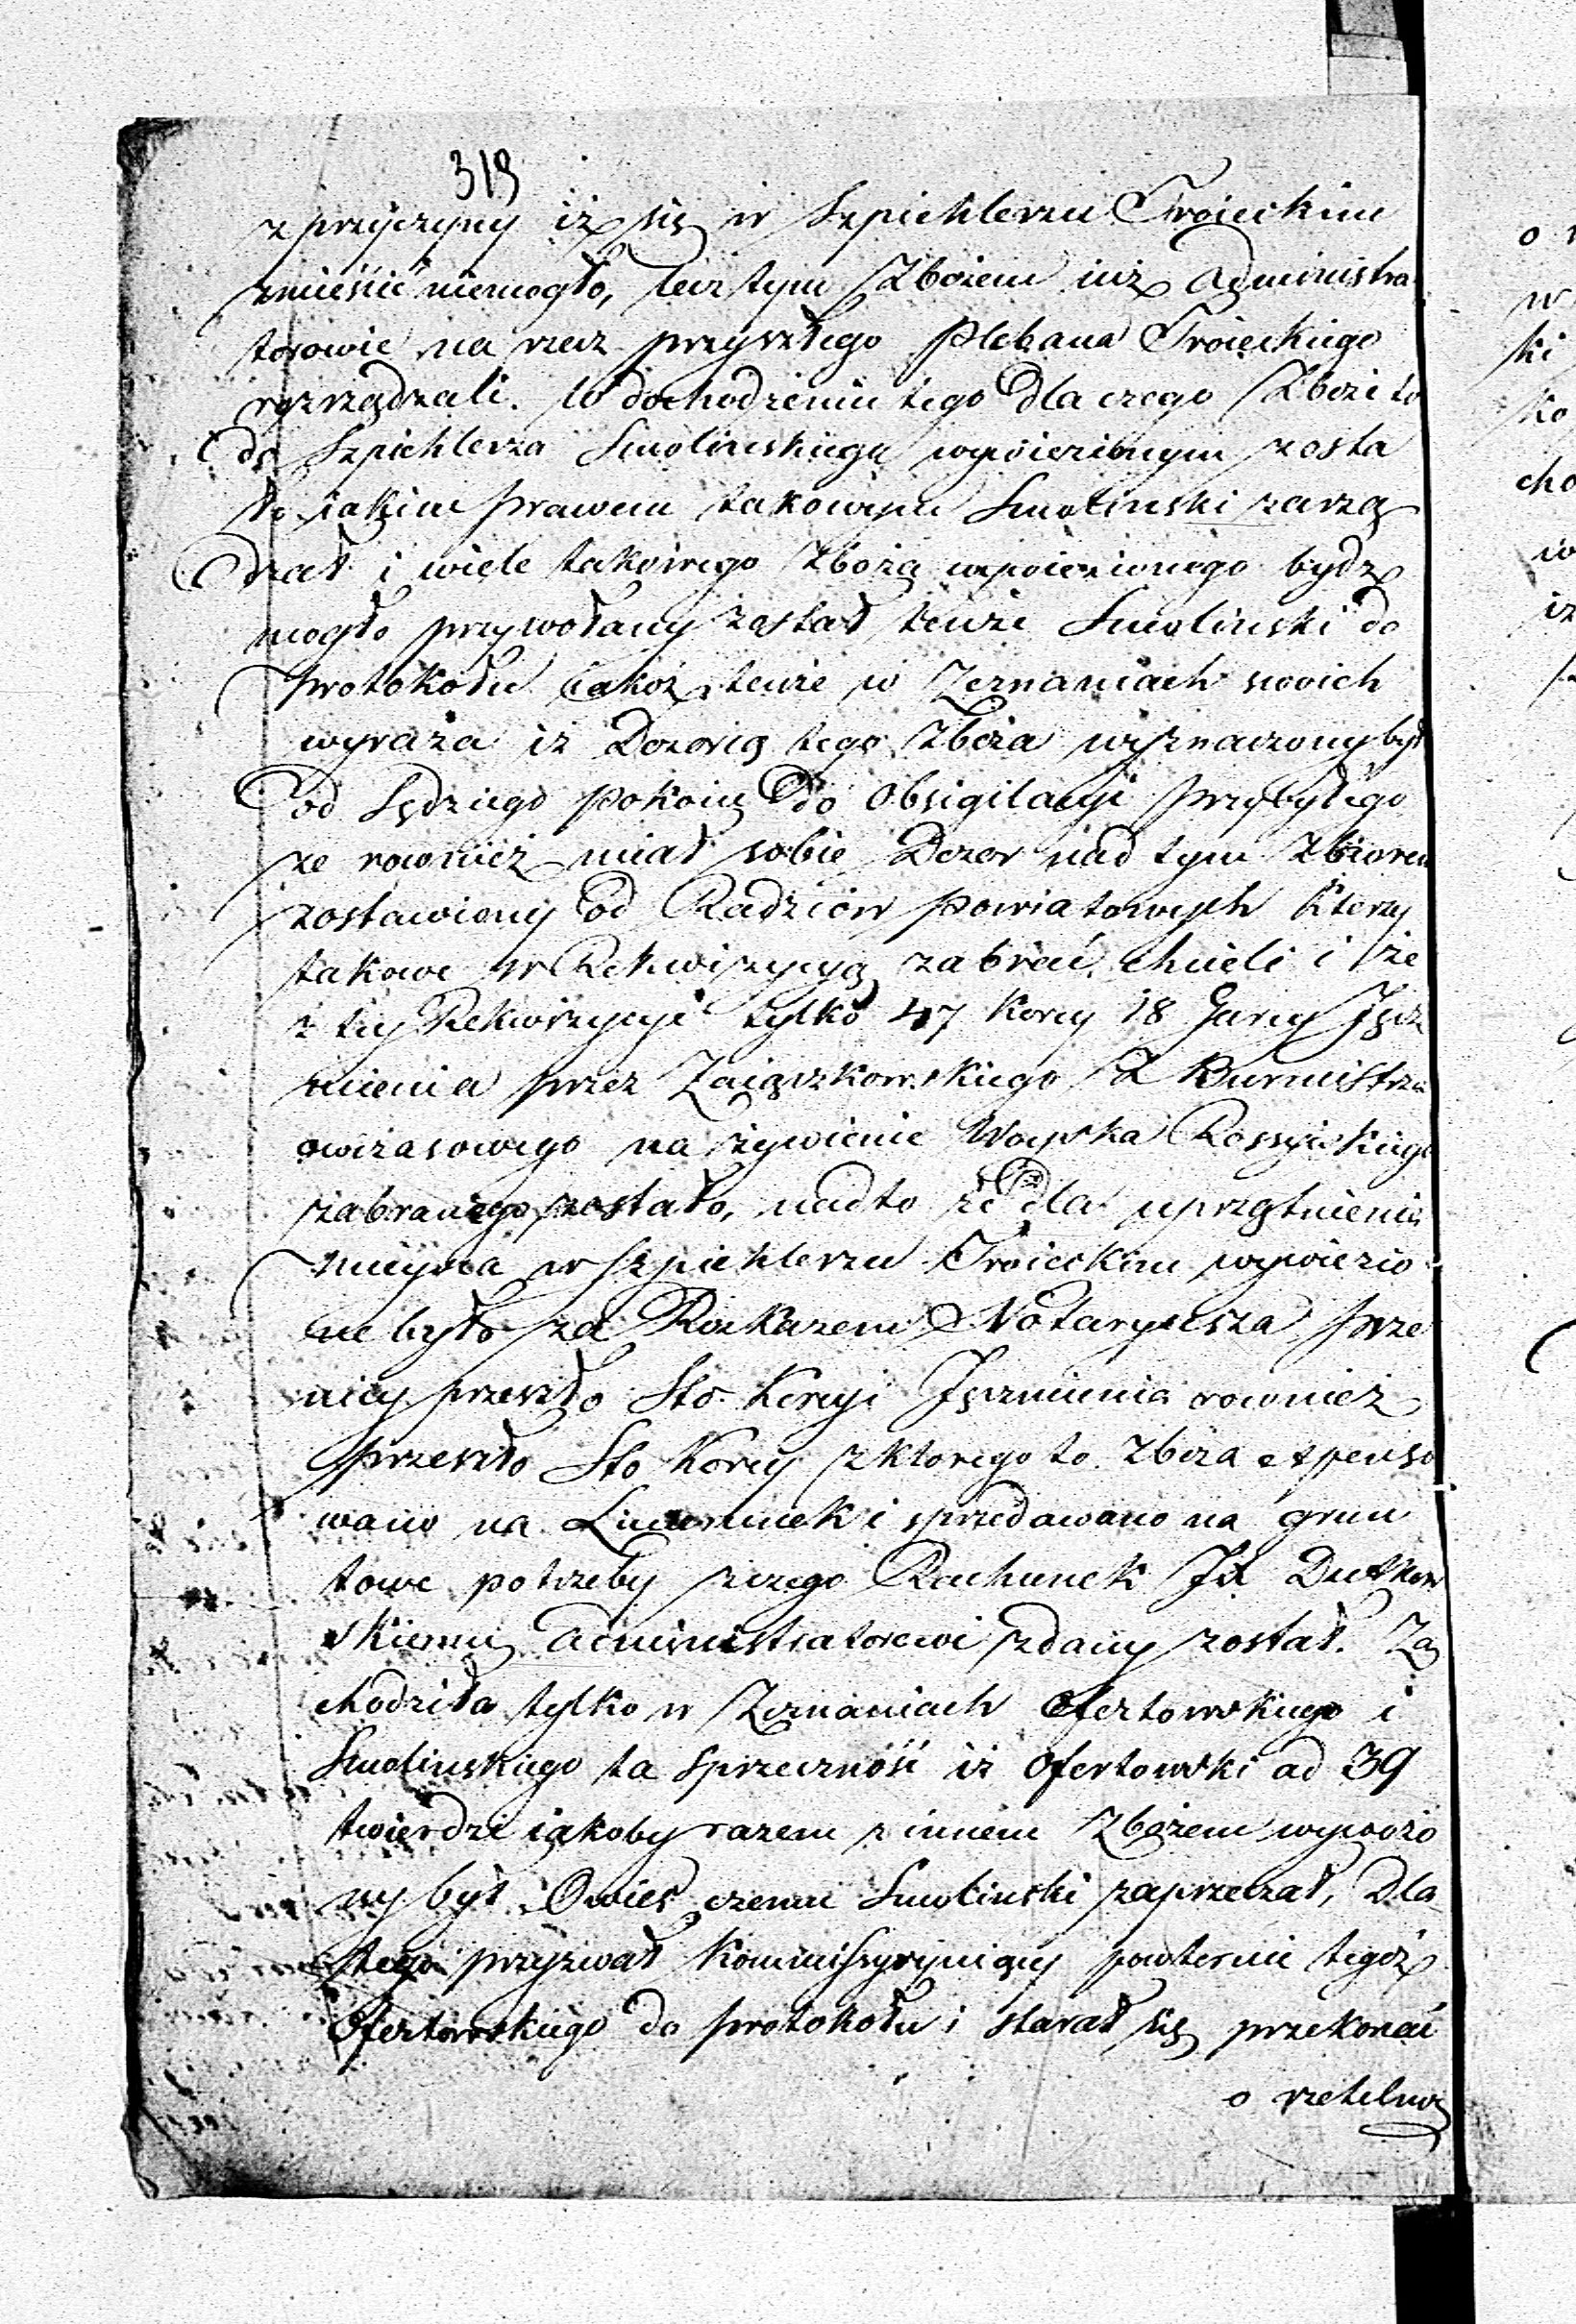 319
z przyczyny iż się w Szpichlerzu Troieckim
zmieścić niemogło, lecz tym Zbożem iuż Administra
torowie na rzecz przyszłego Plebana Troieckiego
rozrządzali. W dochodzeniu tego dla czego Zboże to
do Szpichlerza Smolinskiego wywiezionym zosta
ło iakim prawem takowym Smolinski zarzą
dzał i wiele takowego Zboża wywiezionego bydź
mogło przywołany został tenże Smolinski do
protokołu iakoż tenże w Zeznaniach swoich
wyraża iż Dozorcą tego Zboża wyznaczony był
od Sędziego Pokoiu do Obsigilacyi przybyłego
że rownież miał sobie Dozor nad tym Zbiorem
zostawiony od Radziow Powiatowych ktorzy
takowe w Rekwizycyą zabrać chcieli i że
z tey Rekwizycyi tylko 47 Korcy 18 Garcy Jęcz
mienia przez Zaiączkowskiego Z Burmistrza
owczasowego na żywienie Woyska Rossyiskiego
zabranego zostało, nadto że dla uprzątnienia
mieysca w Szpichlerzu Troieckim wywiezio
ne było za Rozkazem Notaryusza psze
nicy przeszło Sto Korcy i Jęczmienia rownież
przeszło Sto Korcy z ktorego to Zboża expenso
wano na i sprzedawano na grun
towe potrzeby z czego Rachunek JX Dutkow
skiemu Administratorowi zdany został. Za
chodziła tylko w Zeznaniach Ofertowskiego i
Smolinskiego ta sprzeczność iż Ofertowski ad 39
twierdzi iakoby razem z innem Zbożem wywożo
ny był Owies czemu Smolinski zaprzeczał, Dla
tego przyzwał Kommissyoyniący powtornie tegoż
Ofertowskiego do protokołu i starał się przekonać
o rzetelno
o
w
ki
ko
cho
w
iz